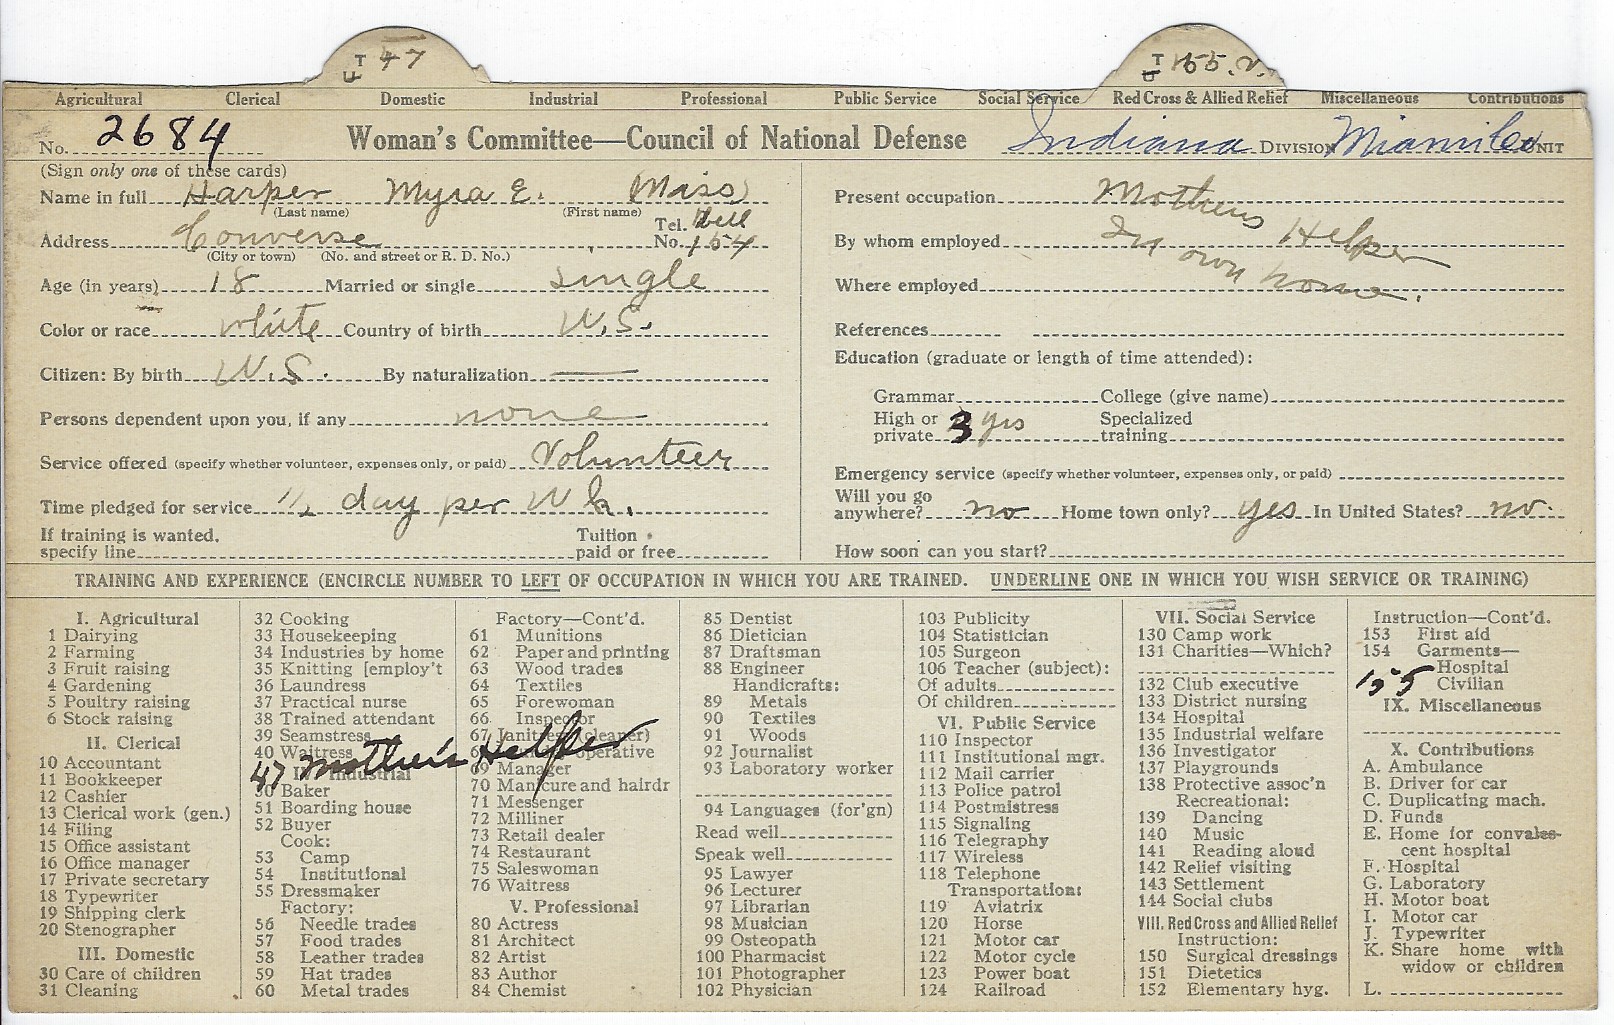 T 47
T 155. v.
Agricultural Clerical Domestic Industrial Professional Public Service Social Service Red Cross & Allied Relief Miscellaneous Contributions
No. 2684 Woman's Committee—Council of National Defense Indiana Division Miami Co Unit
(Sign only one of these cards)
Name in full Harper Myra E. (Miss)
(Last name) (First name)
Address Converse Tel. No. Bell 154
(City or town) (No. and street or R. D. No.)
Age (in years) 18 Married or single single
Color or race white Country of birth U.S.
Citizen: By birth U.S. By naturalization —
Persons dependent upon you, if any none
Service offered (specify whether volunteer, expenses only, or paid) Volunteer
Time pledged for service 1/2 day per Wk.
If training is wanted, specify line Tuition paid or free
Present occupation Mothers Helper
By whom employed In own home.
Where employed
References
Education (graduate or length of time attended):
Grammar College (give name)
High or private 3 yrs Specialized training
Emergency service (specify whether volunteer, expenses only, or paid)
Will you go anywhere? no Home town only? yes In United States? no.
How soon can you start?
TRAINING AND EXPERIENCE (ENCIRCLE NUMBER TO LEFT OF OCCUPATION IN WHICH YOU ARE TRAINED. UNDERLINE ONE IN WHICH YOU WISH SERVICE OR TRAINING)
I. Agricultural
1 Dairying
2 Farming
3 Fruit raising
4 Gardening
5 Poultry raising
6 Stock raising
II. Clerical
10 Accountant
11 Bookkeeper
12 Cashier
13 Clerical work (gen.)
14 Filing
15 Office assistant
16 Office manager
17 Private secretary
18 Typewriter
19 Shipping clerk
20 Stenographer
III. Domestic
30 Care of children
31 Cleaning
32 Cooking
33 Housekeeping
34 Industries by home
35 Knitting [employ't
36 Laundress
37 Practical nurse
38 Trained attendant
39 Seamstress
40 Waitress
47 Mother's Helper
Industrial
50 Baker
51 Boarding house
52 Buyer
Cook:
53 Camp
54 Institutional
55 Dressmaker
Factory:
56 Needle trades
57 Food trades
58 Leather trades
59 Hat trades
60 Metal trades
Factory—Cont'd.
61 Munitions
62 Paper and printing
63 Wood trades
64 Textiles
65 Forewoman
66 Inspector
67 Janitress (cleaner)
operative
69 Manager
70 Manicure and hairdr
71 Messenger
72 Milliner
73 Retail dealer
74 Restaurant
75 Saleswoman
76 Waitress
V. Professional
80 Actress
81 Architect
82 Artist
83 Author
84 Chemist
85 Dentist
86 Dietician
87 Draftsman
88 Engineer
Handicrafts:
89 Metals
90 Textiles
91 Woods
92 Journalist
93 Laboratory worker
94 Languages (for'gn)
Read well
Speak well
95 Lawyer
96 Lecturer
97 Librarian
98 Musician
99 Osteopath
100 Pharmacist
101 Photographer
102 Physician
103 Publicity
104 Statistician
105 Surgeon
106 Teacher (subject):
Of adults
Of children
VI. Public Service
110 Inspector
111 Institutional mgr.
112 Mail carrier
113 Police patrol
114 Postmistress
115 Signaling
116 Telegraphy
117 Wireless
118 Telephone
Transportation:
119 Aviatrix
120 Horse
121 Motor car
122 Motor cycle
123 Power boat
124 Railroad
VII. Social Service
130 Camp work
131 Charities—Which?
132 Club executive
133 District nursing
134 Hospital
135 Industrial welfare
136 Investigator
137 Playgrounds
138 Protective assoc'n
Recreational:
139 Dancing
140 Music
141 Reading aloud
142 Relief visiting
143 Settlement
144 Social clubs
VIII. Red Cross and Allied Relief
Instruction:
150 Surgical dressings
151 Dietetics
152 Elementary hyg.
Instruction—Cont'd.
153 First aid
154 Garments—
Hospital
155 Civilian
IX. Miscellaneous
X. Contributions
A. Ambulance
B. Driver for car
C. Duplicating mach.
D. Funds
E. Home for convales-
cent hospital
F. Hospital
G. Laboratory
H. Motor boat
I. Motor car
J. Typewriter
K. Share home with
widow or children
L.